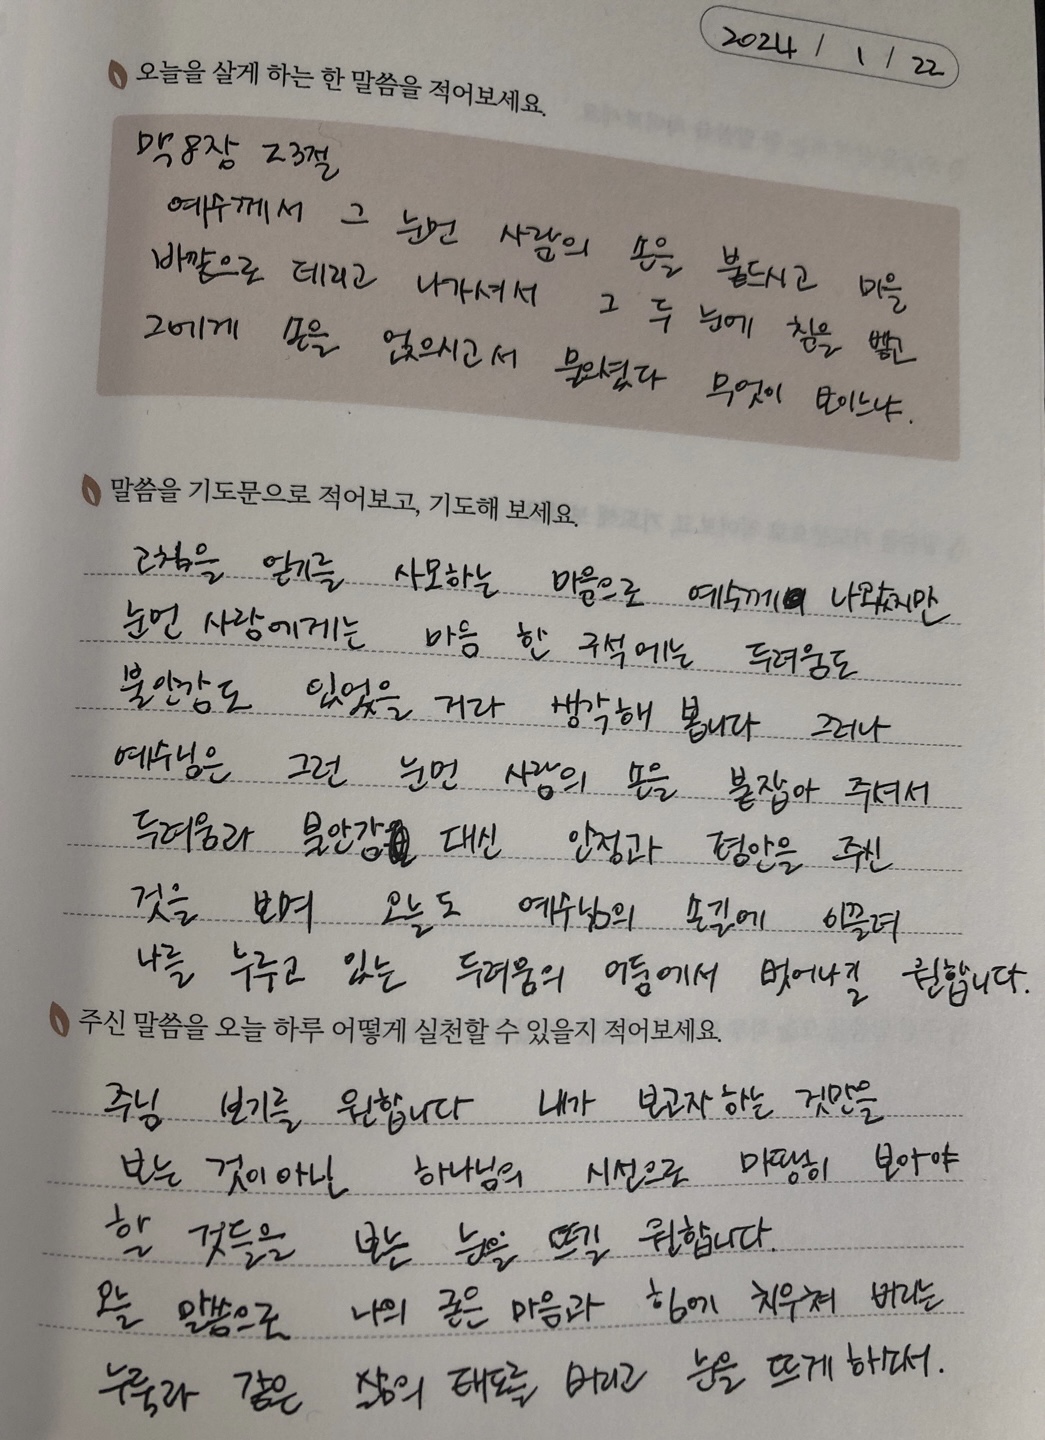 2024 / 1 / 22
오늘을 살게 하는 한 말씀을 적어보세요.
막 8장 23절
예수께서 그 눈먼 사람의 손을 붙드시고 마을
바깥으로 데리고 나가셔서 그 두 눈에 침을 뱉고
그에게 손을 얹으시고서 물으셨다 무엇이 보이느냐.
말씀을 기도문으로 적어보고, 기도해 보세요.
고침을 얻기를 사모하는 마음으로 예수께 나왔지만
눈먼 사람에게는 마음 한 구석에는 두려움도
불안감도 있었을 거라 생각해 봅니다 그러나
예수님은 그런 눈먼 사람의 손을 붙잡아 주셔서
두려움과 불안감 대신 안정과 평안을 주신
것을 보며 오늘도 예수님의 손길에 이끌려
나를 누루고 있는 두려움의 어둠에서 벗어나길 원합니다.
주신 말씀을 오늘 하루 어떻게 실천할 수 있을지 적어보세요.
주님 보기를 원합니다 내가 보고자 하는 것만을
보는 것이 아닌 하나님의 시선으로 마땅히 보아야
할 것들을 보는 눈을 뜨길 원합니다.
오늘 말씀으로 나의 굳은 마음과 힘에 치우쳐 버리는
누룩과 같은 삶의 태도를 버리고 눈을 뜨게 하소서.